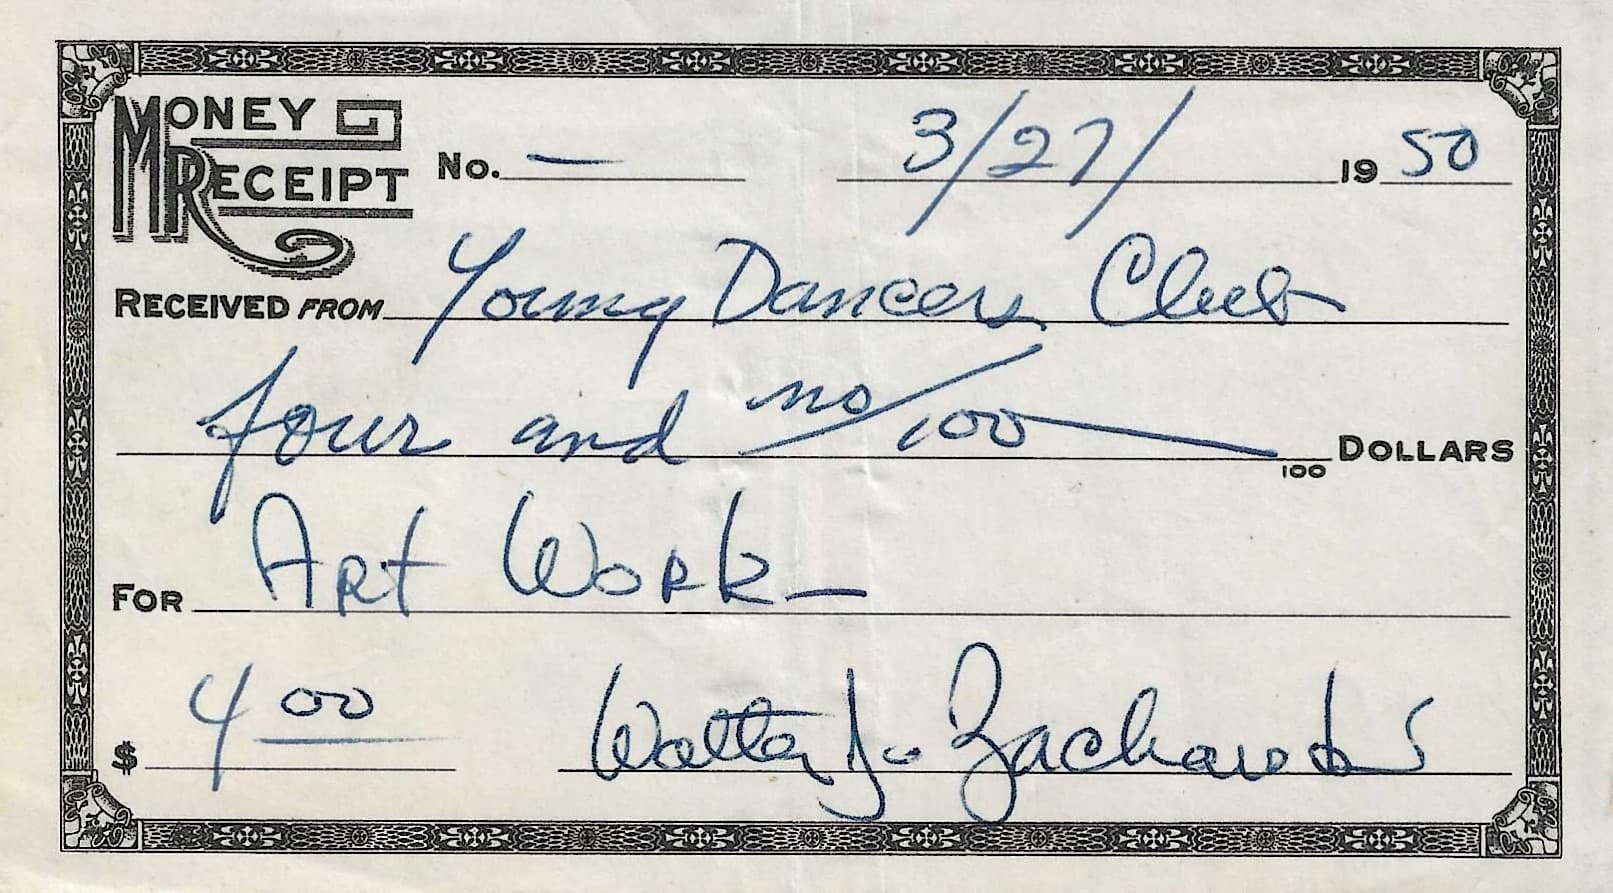 MONEY RECEIPT No. — 3/27/ 1950
RECEIVED FROM Young Dancers Club
four and no/100 100 DOLLARS
FOR Art Work —
$ 4 00 Walter J.